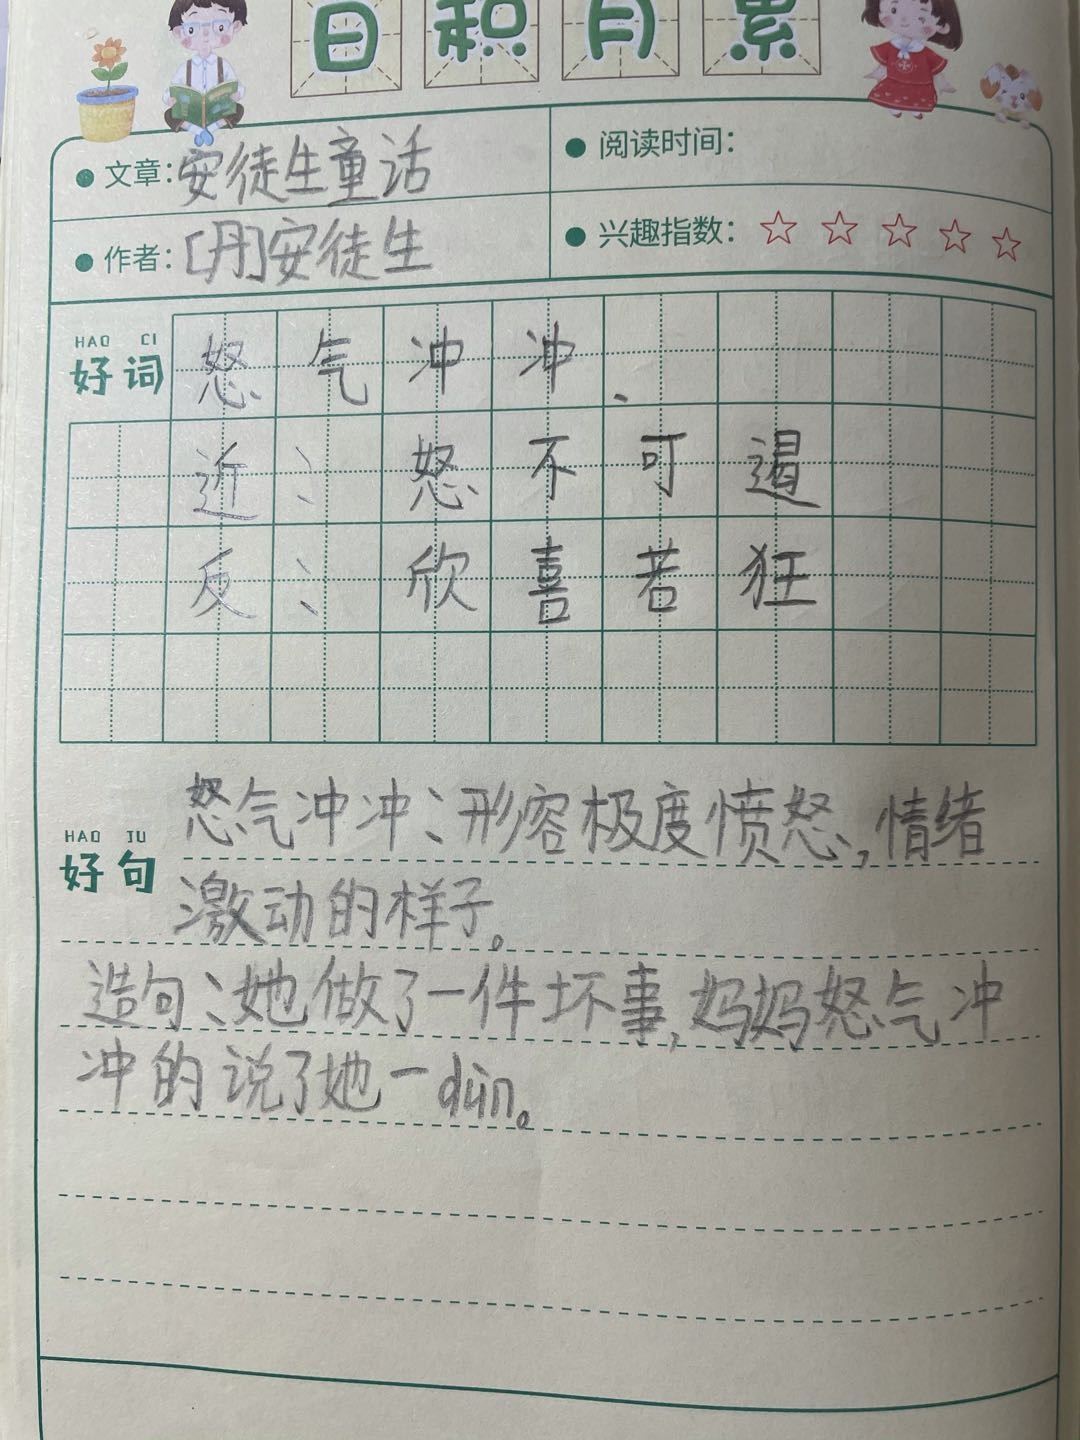 日积月累
文章：安徒生童话
阅读时间：
作者：[丹]安徒生
兴趣指数：☆☆☆☆☆
HAO CI
好词
怒气冲冲、
近：怒不可遏
反：欣喜若狂
HAO JU
好句
怒气冲冲：形容极度愤怒，情绪
激动的样子。
造句：她做了一件坏事，妈妈怒气冲
冲的说了她一dùn。